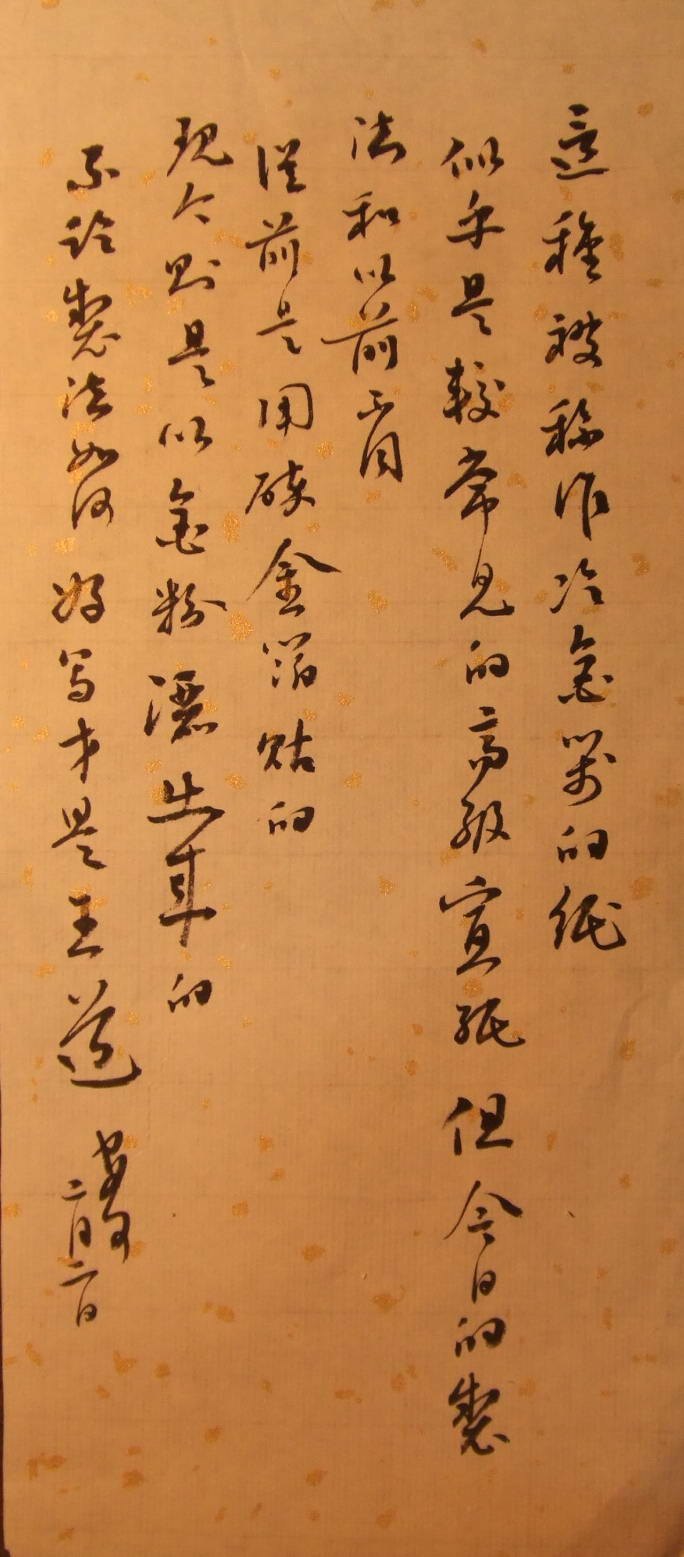 這種被称作冷金箋的紙
似乎是較常見的高級宣紙 但今日的製
法和以前不同
從前是用碎金箔貼的
現今則是以金粉灑上去的
不論製法如何 好写才是王道
二月二日